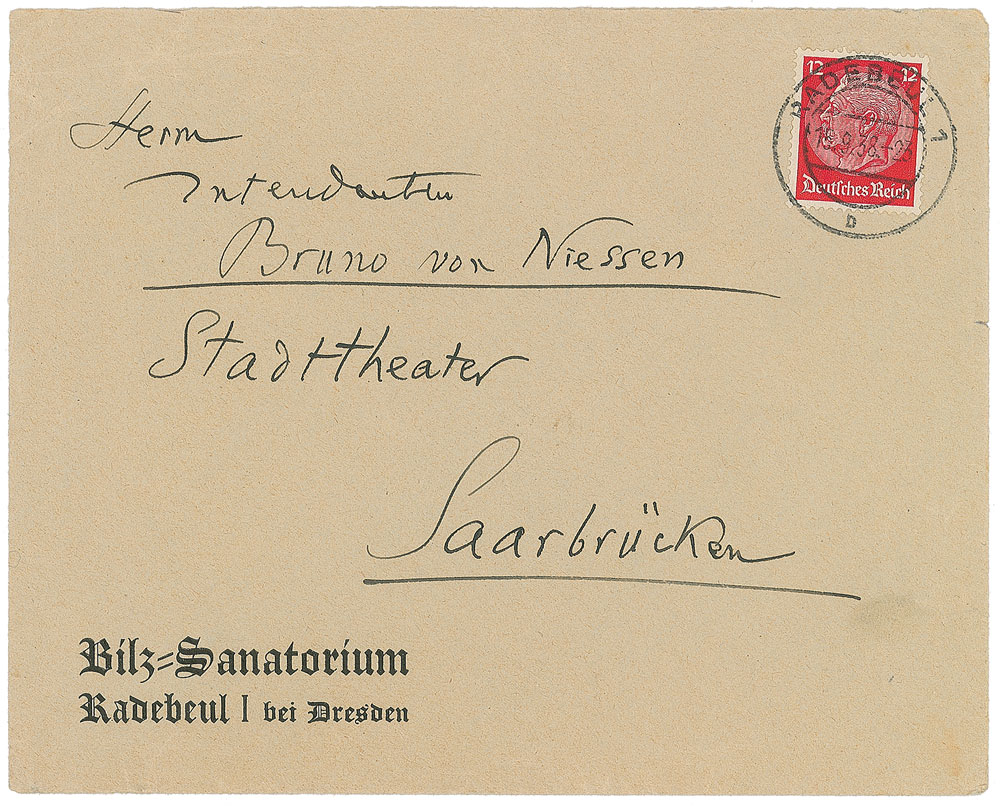 12 12
Deutsches Reich
RADEBEUL 1
b
Herrn
Intendanten
Bruno von Niessen
Stadttheater
Saarbrücken
Bilz=Sanatorium
Radebeul I bei Dresden